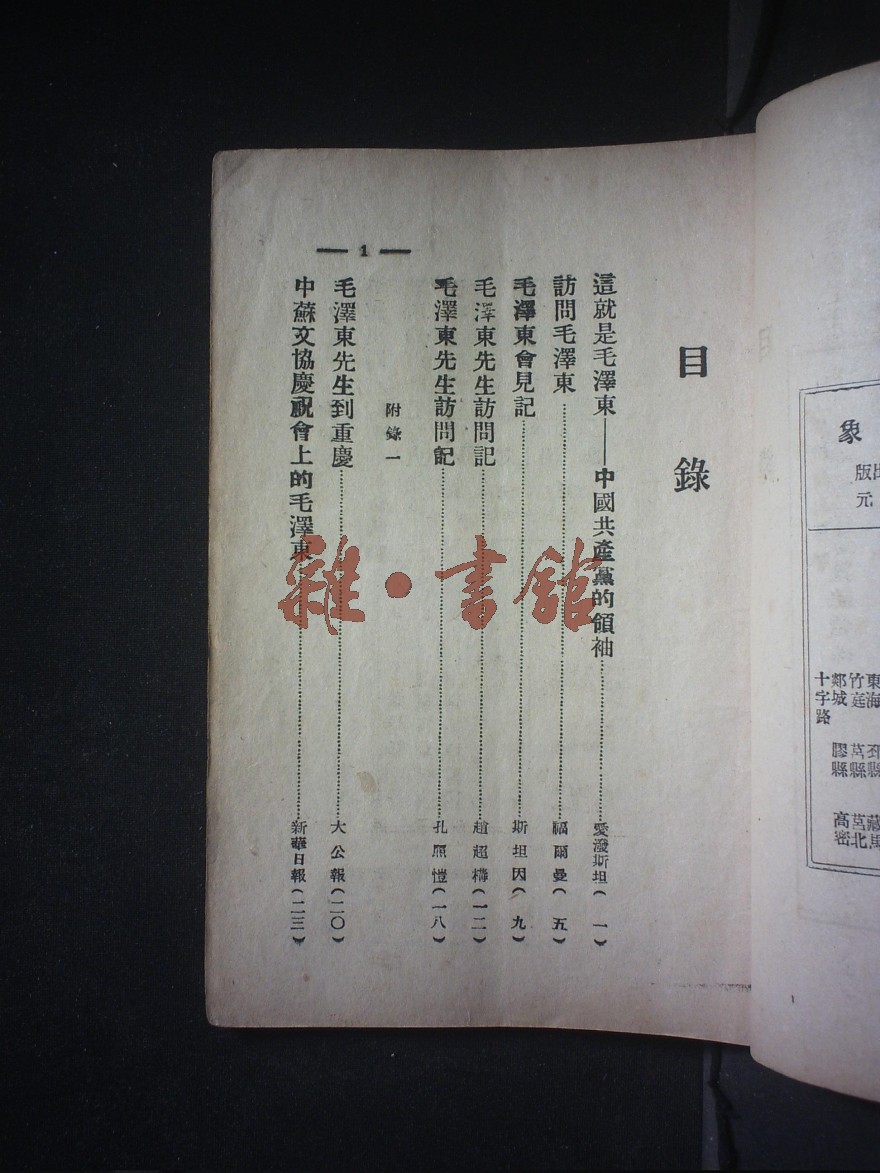 目錄
這就是毛澤東——中國共產黨的領袖……愛潑斯坦（一）
訪問毛澤東……福爾曼（五）
毛澤東會見記……斯坦因（九）
毛澤東先生訪問記……趙超構（一二）
毛澤東先生訪問記……孔昭愷（一八）
附錄一
毛澤東先生到重慶……大公報（二〇）
中蘇文協慶祝會上的毛澤東……新華日報（二三）
— 1 —
雜·書館
象
版
元
東海
竹庭 莒縣 莒北
郯城 膠縣 高密
十字路
1